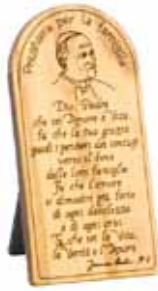 Preghiera per la famiglia
Dio, Padre
che sei Amore e Vita
fa che la tua grazia
guidi i pensieri dei coniugi
verso il bene
delle loro famiglie
Fa che l'amore
si dimostri più forte
di ogni debolezza
e di ogni crisi
Tu che sei la Vita,
la Verità e l'Amore